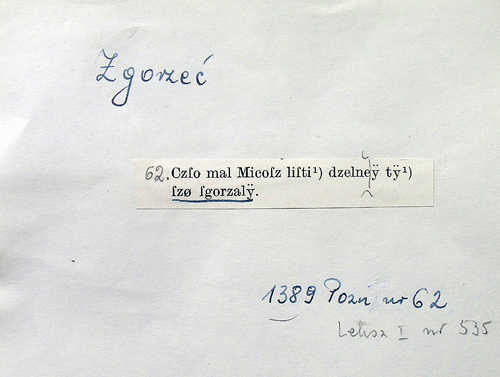 Zgorzeć
62. Czſo mal Micoſz liſti¹) dzelneÿ tÿ¹)
ſzø ſgorzalÿ.
1389 Pozń nr 62
Leksz I nr 535